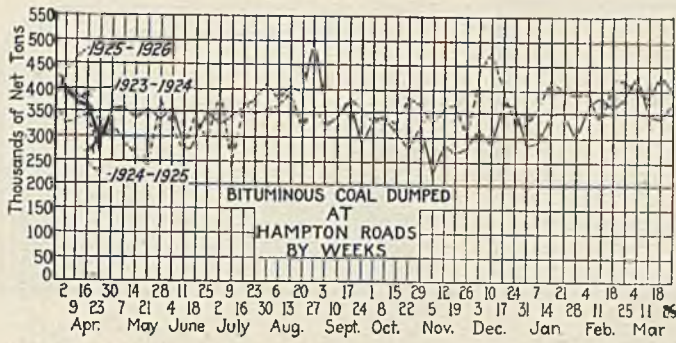 550
500
450
400
350
300
250
200
150
100
50
0
Thousands of Net Tons
1925-1926
1923-1924
1924-1925
BITUMINOUS COAL DUMPED
AT
HAMPTON ROADS
BY WEEKS
2 16 30 14 28 11 25 9 23 6 20 3 10 17 1 15 29 12 26 10 24 7 21 4 18 4 18
9 23 7 21 4 18 2 16 30 13 27 24 8 22 5 19 3 17 31 14 28 11 25 11
Apr. May June July Aug. Sept. Oct. Nov. Dec. Jan Feb. Mar